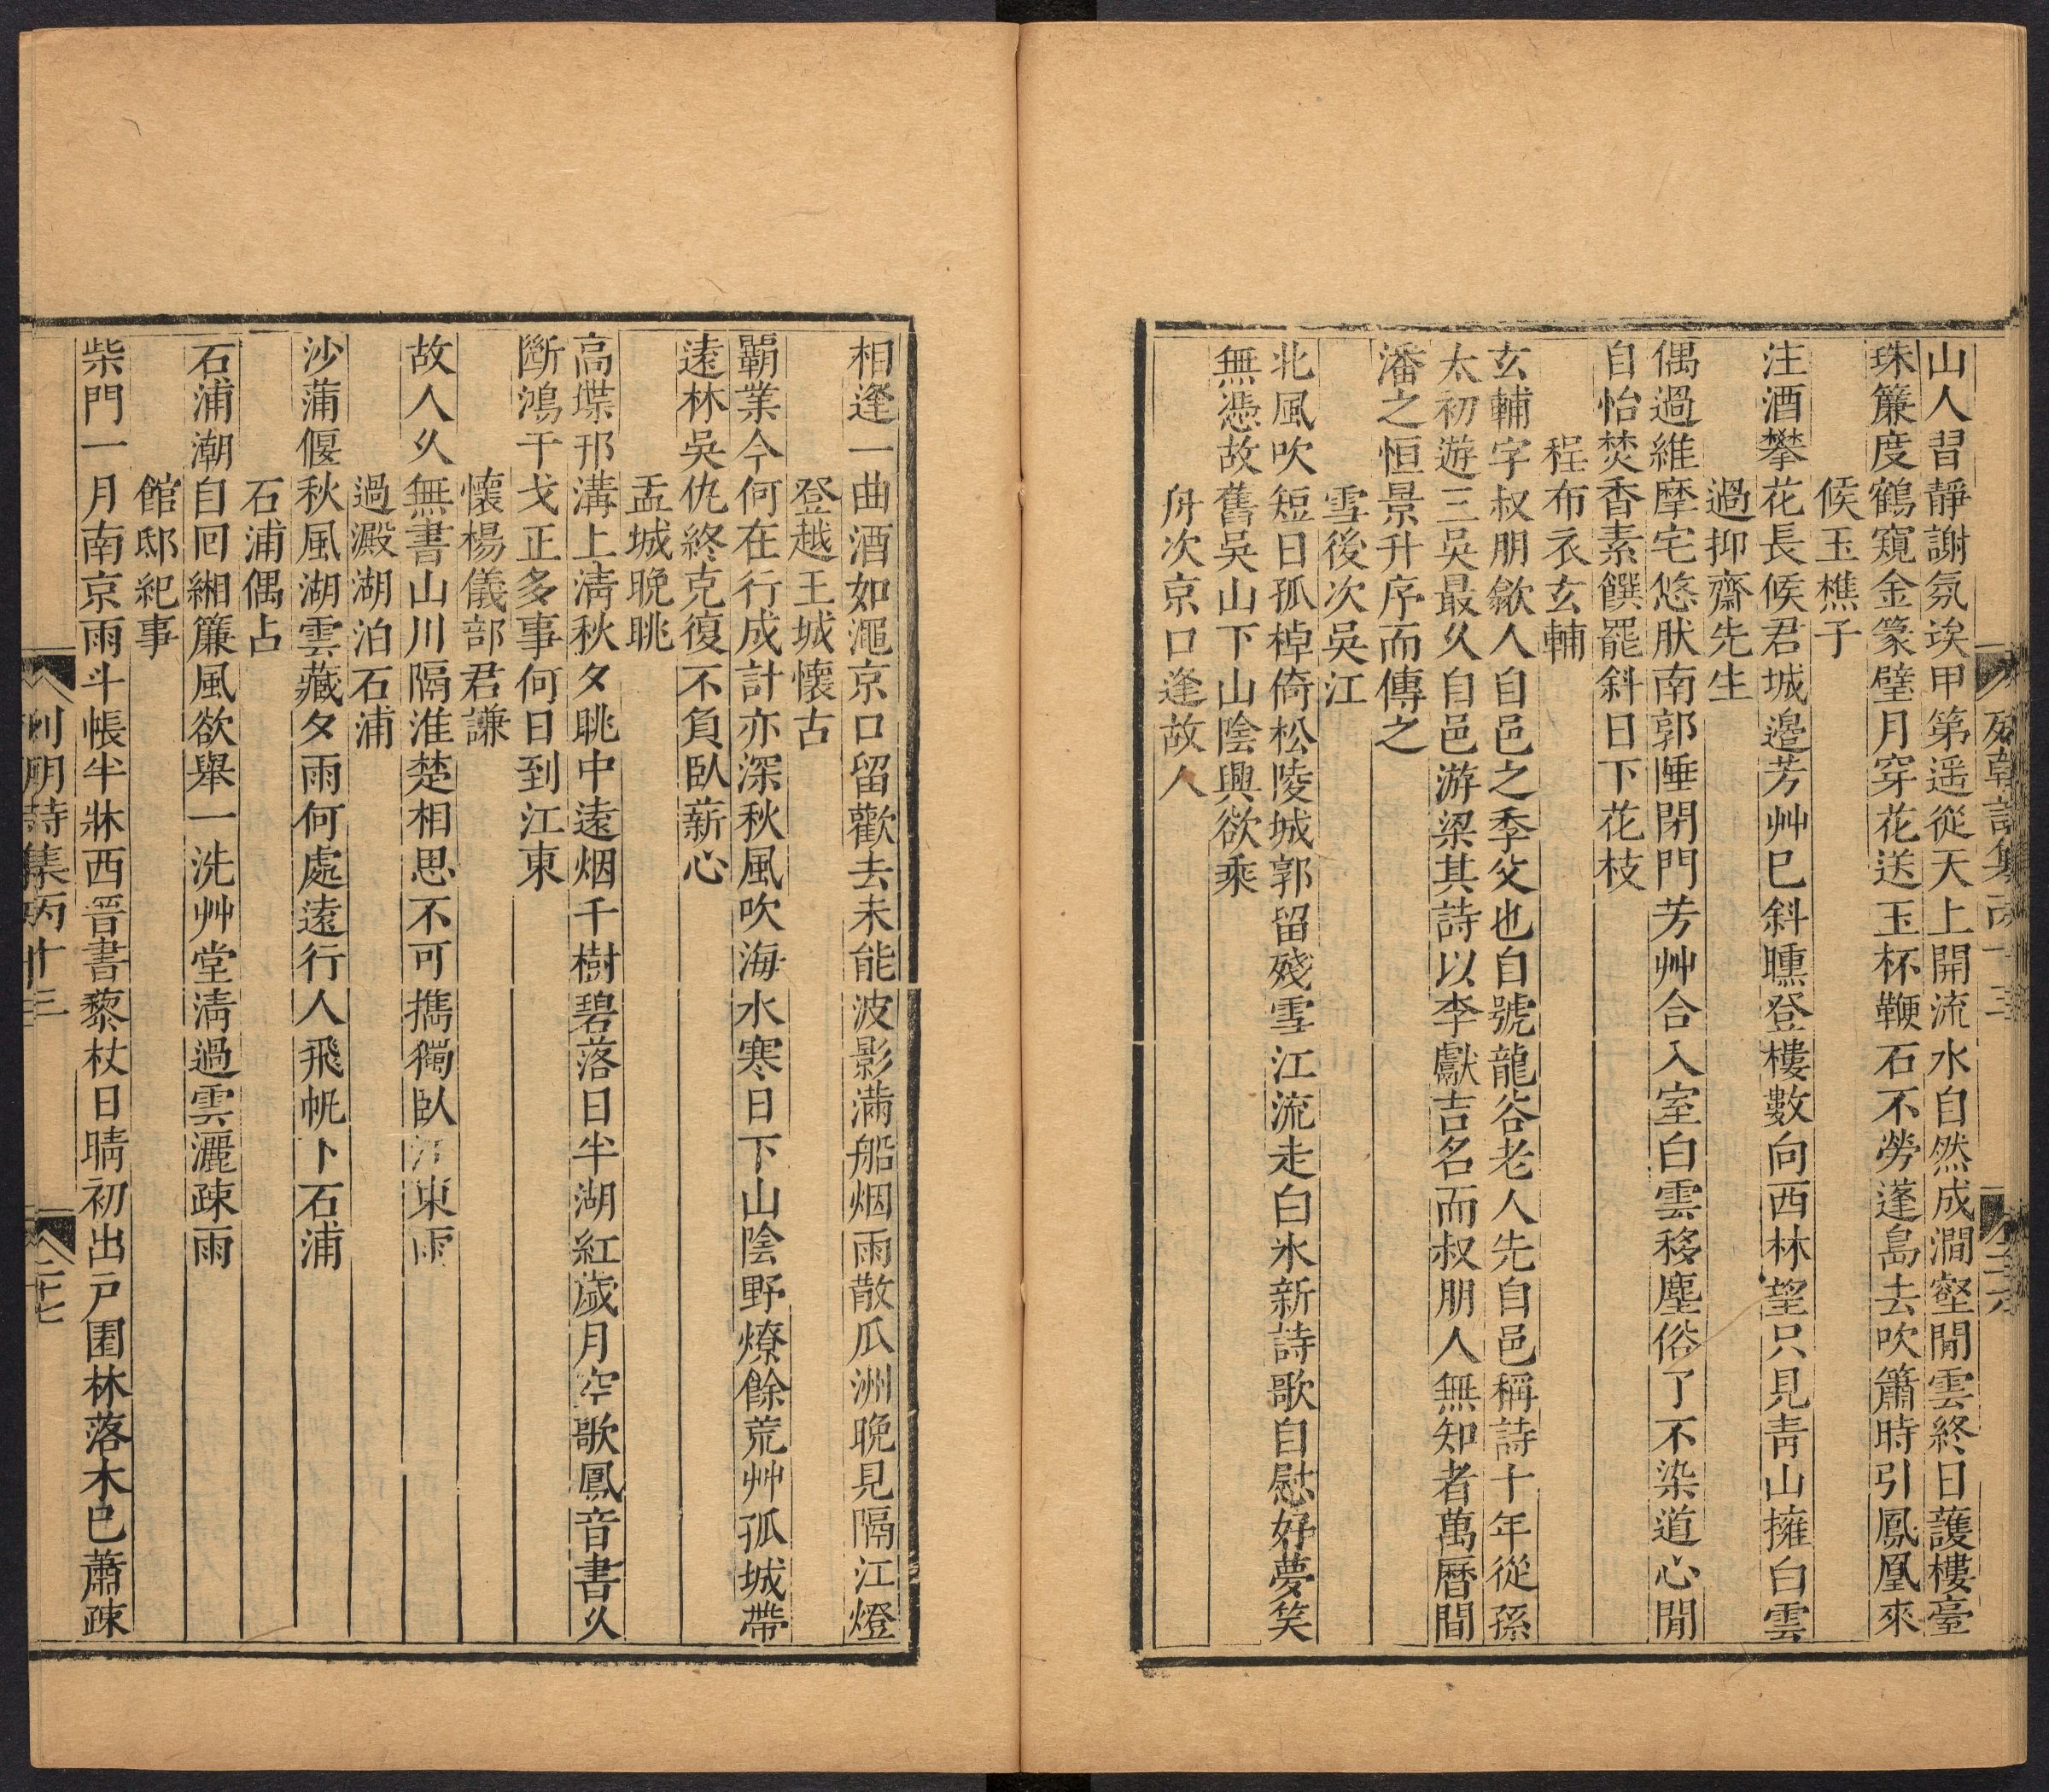 山人習靜謝氛埃甲第遥從天上開流水自然成澗壑閒雲終日護樓臺
珠簾度鶴窺金篆璧月穿花送玉杯鞭石不勞蓬島去吹簫時引鳳凰來
候玉樵子
注酒攀花長候君城邉芳艸巳斜曛登樓數向西林望只見青山擁白雲
過抑齋先生
偶過維摩宅悠肰南郭陲閉門芳艸合入室白雲移塵俗了不染道心閒
自怡焚香素饌罷斜日下花枝
程布衣玄輔
玄輔字叔朋歙人自邑之季父也自號龍谷老人先自邑稱詩十年從孫
太初遊三吳最久自邑游梁其詩以李獻吉名而叔朋人無知者萬曆間
潘之恒景升序而傳之
雪後次吳江
北風吹短日孤棹倚松陵城郭留殘雪江流走白氷新詩歌自慰好夢笑
無憑故舊吳山下山陰興欲乘
舟次京口逢故人
相逢一曲酒如澠京口留歡去未能波影滿船烟雨散瓜洲晚見隔江燈
登越王城懷古
覇業今何在行成計亦深秋風吹海水寒日下山陰野燎餘荒艸孤城帶
遠林吳仇終克復不負臥薪心
盂城晚眺
高堞邗溝上清秋夕眺中遠烟千樹碧落日半湖紅歲月空歌鳳音書久
斷鴻干戈正多事何日到江東
懷楊儀部君謙
故人久無書山川隔淮楚相思不可攜獨臥江東雨
過澱湖泊石浦
沙蒲偃秋風湖雲藏夕雨何處遠行人飛帆卜石浦
石浦偶占
石浦潮自囘緗簾風欲舉一洗艸堂淸過雲灑疎雨
館邸紀事
柴門一月南京雨斗帳半牀西晉書藜杖日晴初出戶園林落木已蕭疎
列朝詩集丙十三
二十七